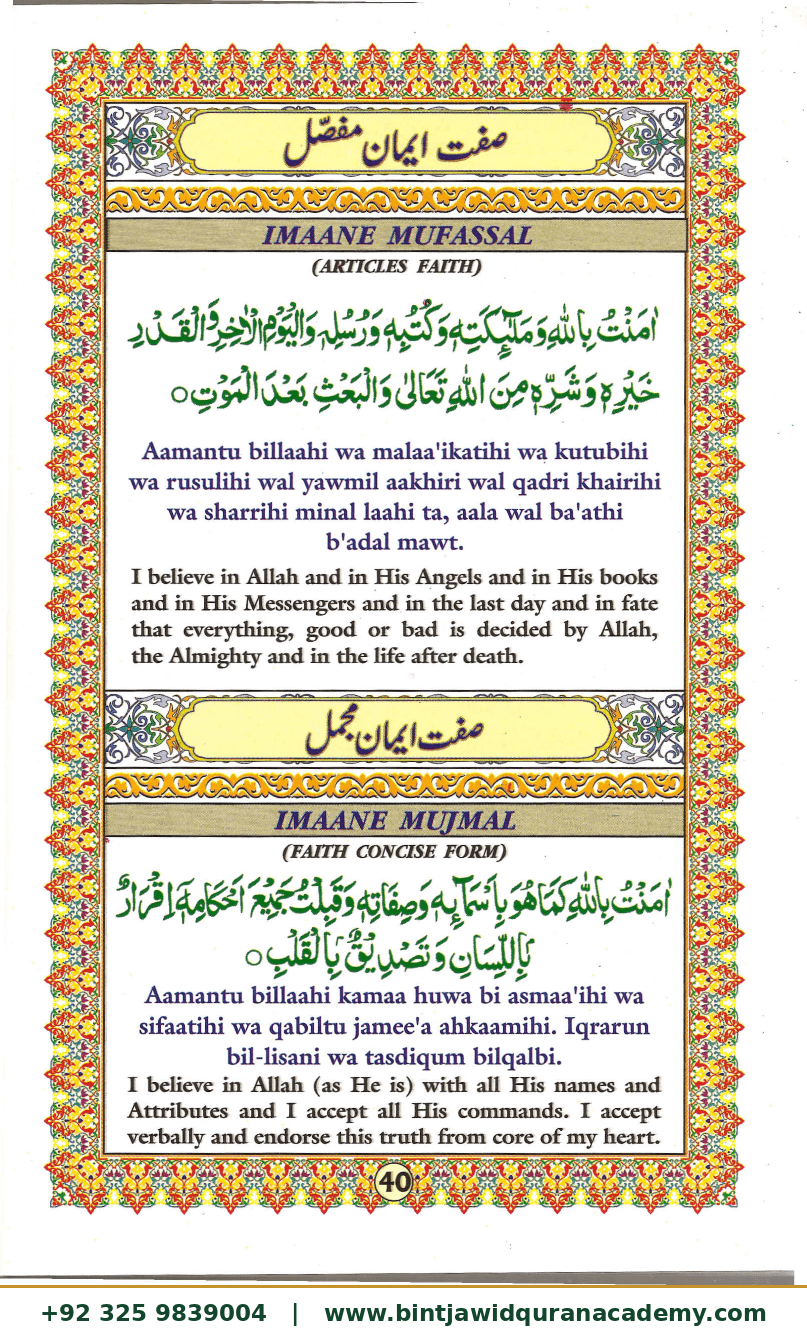 صفت ایمان مفصّل
IMAANE MUFASSAL
(ARTICLES FAITH)
اٰمَنْتُ بِاللّٰهِ وَمَلٰٓئِكَتِهٖ وَكُتُبِهٖ وَرُسُلِهٖ وَالْيَوْمِ الْاٰخِرِ وَالْقَدْرِ
خَيْرِهٖ وَشَرِّهٖ مِنَ اللّٰهِ تَعَالٰى وَالْبَعْثِ بَعْدَ الْمَوْتِ ○
Aamantu billaahi wa malaa'ikatihi wa kutubihi
wa rusulihi wal yawmil aakhiri wal qadri khairihi
wa sharrihi minal laahi ta, aala wal ba'athi
b'adal mawt.
I believe in Allah and in His Angels and in His books
and in His Messengers and in the last day and in fate
that everything, good or bad is decided by Allah,
the Almighty and in the life after death.
صفت ایمان مجمل
IMAANE MUJMAL
(FAITH CONCISE FORM)
اٰمَنْتُ بِاللّٰهِ كَمَا هُوَ بِاَسْمَآئِهٖ وَصِفَاتِهٖ وَقَبِلْتُ جَمِيْعَ اَحْكَامِهٖٓ اِقْرَارٌ
بِاللِّسَانِ وَتَصْدِيْقٌ بِالْقَلْبِ ○
Aamantu billaahi kamaa huwa bi asmaa'ihi wa
sifaatihi wa qabiltu jamee'a ahkaamihi. Iqrarun
bil-lisani wa tasdiqum bilqalbi.
I believe in Allah (as He is) with all His names and
Attributes and I accept all His commands. I accept
verbally and endorse this truth from core of my heart.
40
+92 325 9839004 | www.bintjawidquranacademy.com